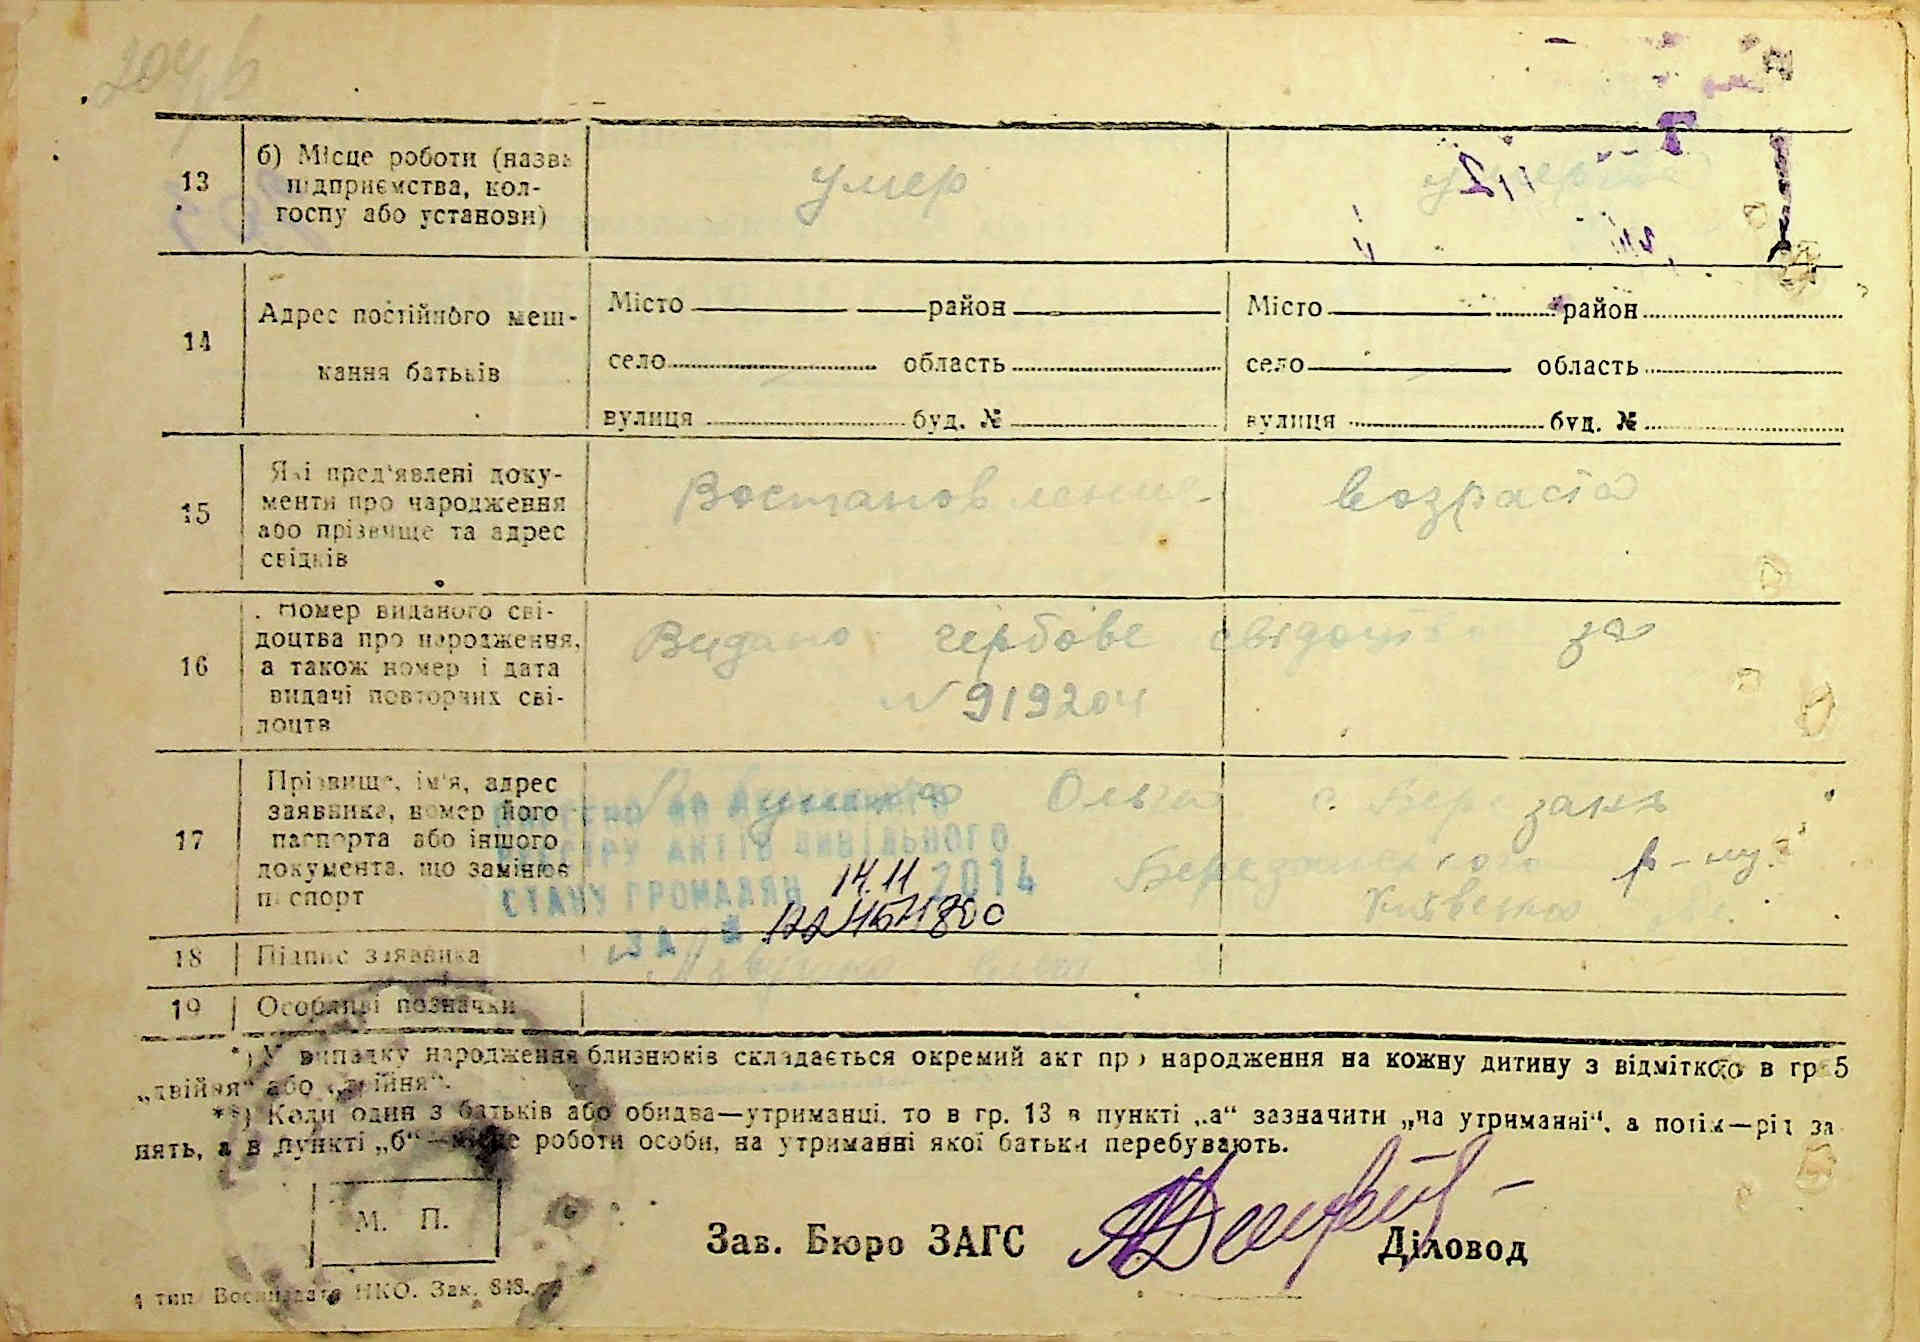 13
б) Місце роботи (назва
підприємства, кол-
госпу або установи)
умер
14
Адрес постійного меш-
кання батьків
Місто район
село область
вулиця буд. №
Місто район
село область
вулиця буд. №
15
Які пред'явлені доку-
менти про народження
або прізвище та адрес
свідків
Востановление возраста
16
Номер виданого сві-
доцтва про народження,
а також номер і дата
видачі повторних сві-
доцтв
Видано гербове свідоцтво за
N 919204
17
Прізвище, ім'я, адрес
заявника, номер його
паспорта або іншого
документа, що замінює
паспорт
Ольга с. Березань
Березанського р-ну
Київської
РЕЄСТРУ АКТІВ ЦИВІЛЬНОГО
СТАНУ ГРОМАДЯН 14.11 2014
ЗА №
18
Підпис заявника
19
Особливі позначки
*) У випадку народження близнюків складається окремий акт про народження на кожну дитину з відміткою в гр 5
„двійня“ або „двійня“.
**) Коли один з батьків або обидва—утриманці, то в гр. 13 в пункті „а“ зазначити „на утриманні“, а потім—рід за-
нять, а в пункті „б“—місце роботи особи, на утриманні якої батьки перебувають.
М. П.
Зав. Бюро ЗАГС
Діловод
4 тип. Воениздата НКО. Зак. 848.